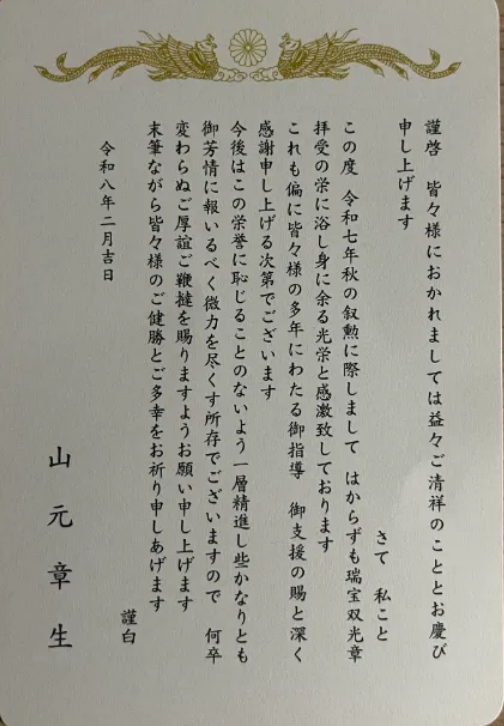 謹啓　皆々様におかれましては益々ご清祥のこととお慶び
申し上げます
さて　私こと
この度　令和七年秋の叙勲に際しまして　はからずも瑞宝双光章
拝受の栄に浴し身に余る光栄と感激致しております
これも偏に皆々様の多年にわたる御指導　御支援の賜と深く
感謝申し上げる次第でございます
今後はこの栄誉に恥じることのないよう一層精進し些かなりとも
御芳情に報いるべく微力を尽くす所存でございますので　何卒
変わらぬご厚誼ご鞭撻を賜りますようお願い申し上げます
末筆ながら皆々様のご健勝とご多幸をお祈り申しあげます
謹白
令和八年二月吉日
山元章生